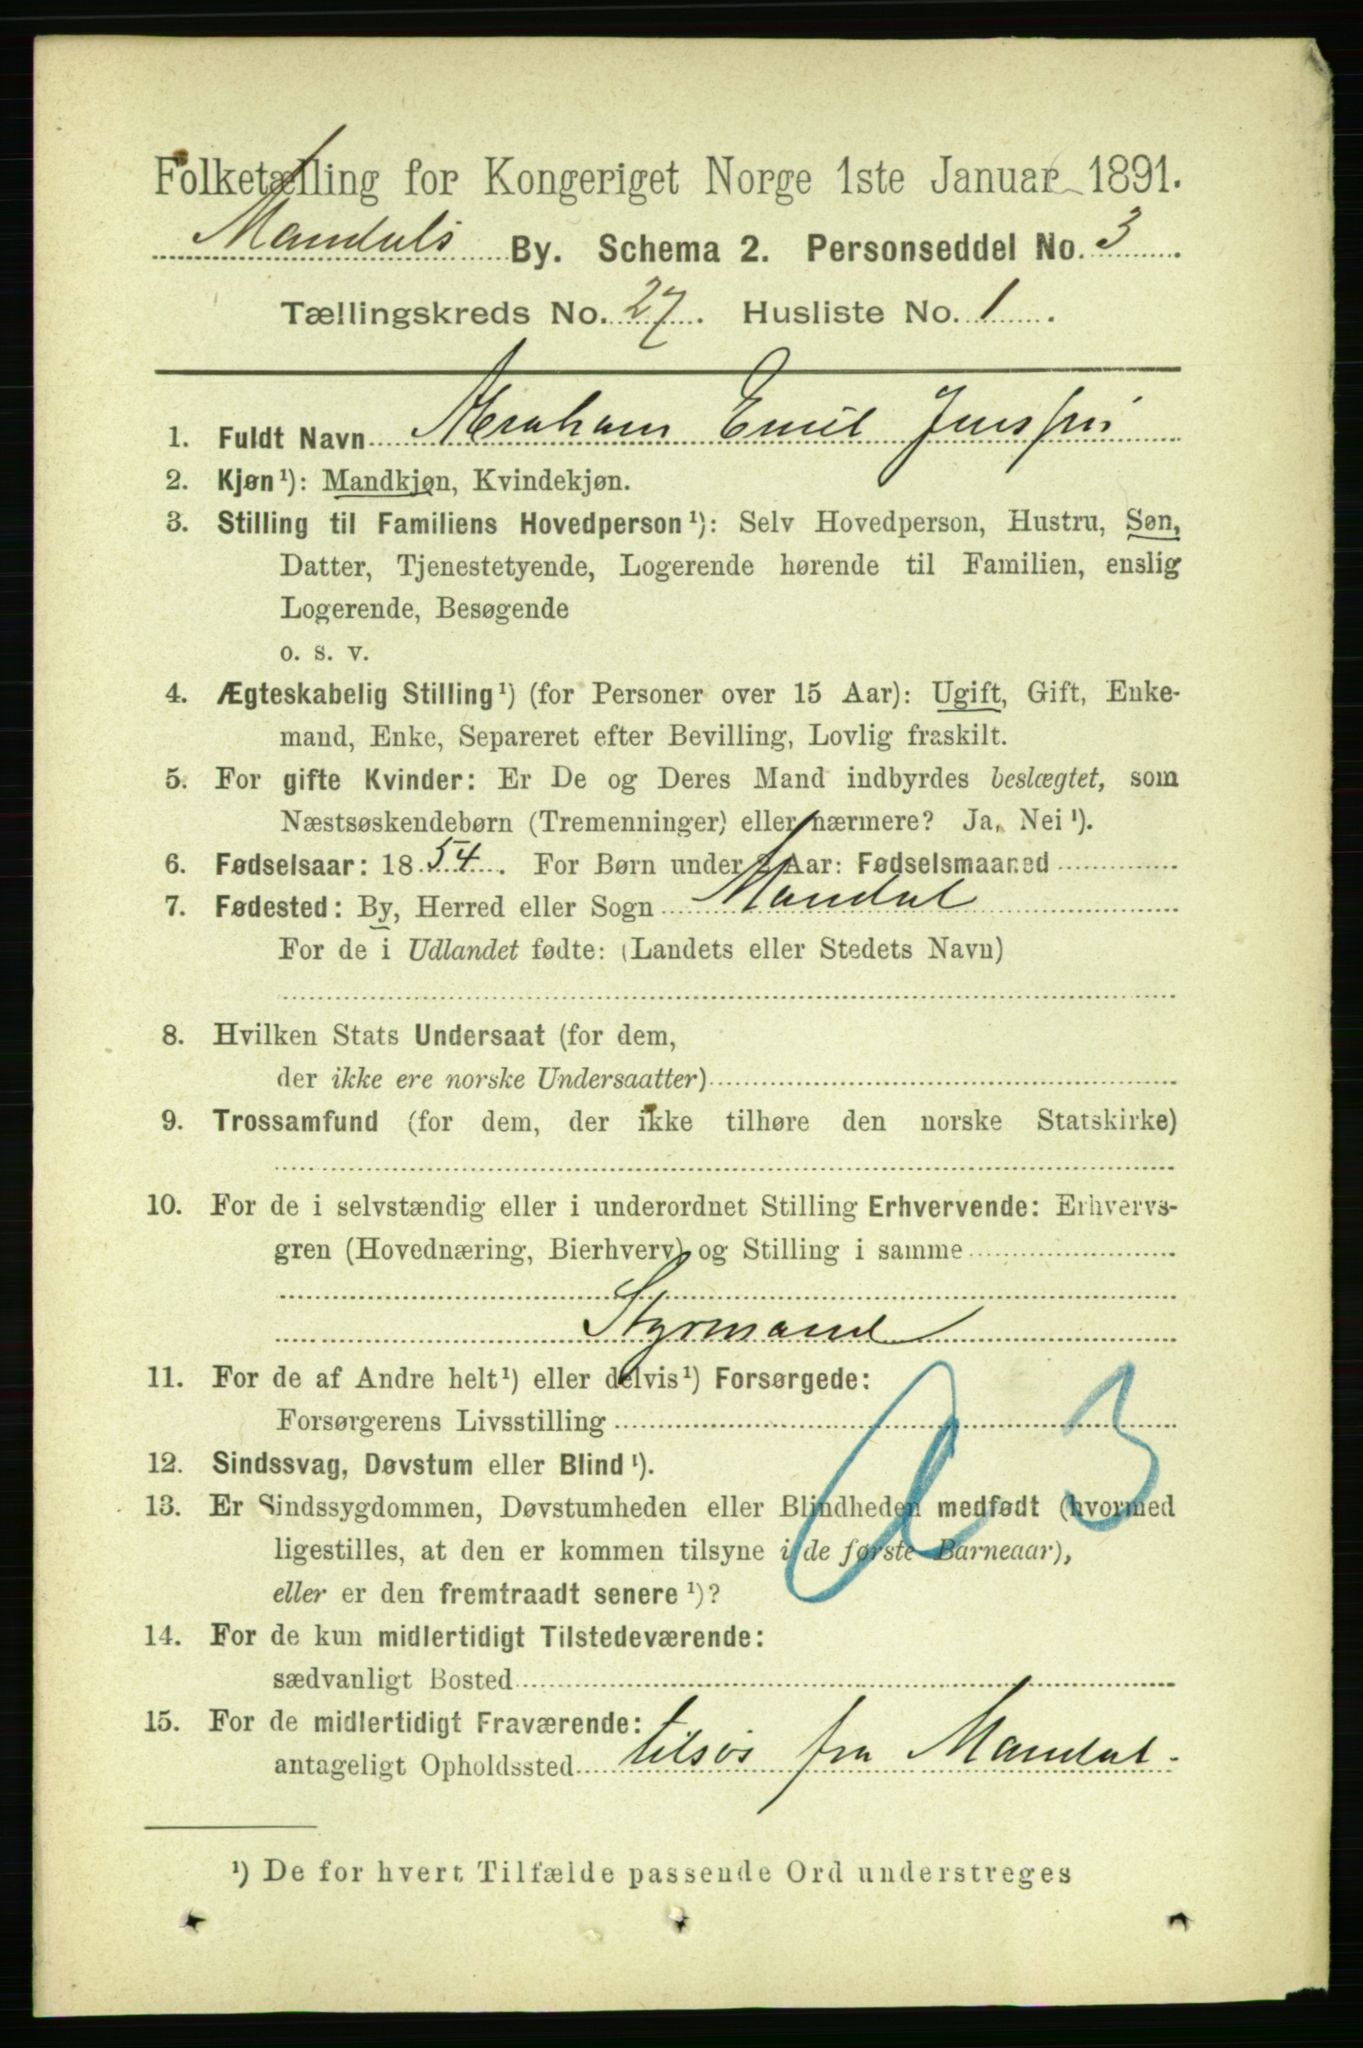 Folketælling for Kongeriget Norge 1ste Januar 1891.
Mandals By. Schema 2. Personseddel No. 3.
Tællingskreds No. 27. Husliste No. 1.
1. Fuldt Navn Abraham Emil
2. Kjøn¹): Mandkjøn, Kvindekjøn.
3. Stilling til Familiens Hovedperson¹): Selv Hovedperson, Hustru, Søn,
Datter, Tjenestetyende, Logerende hørende til Familien, enslig
Logerende, Besøgende
o. s. v.
4. Ægteskabelig Stilling¹) (for Personer over 15 Aar): Ugift, Gift, Enke-
mand, Enke, Separeret efter Bevilling, Lovlig fraskilt.
5. For gifte Kvinder: Er De og Deres Mand indbyrdes beslægtet, som
Næstsøskendebørn (Tremenninger) eller nærmere? Ja, Nei¹).
6. Fødselsaar: 1854. For Børn under 2 Aar: Fødselsmaaned
7. Fødested: By, Herred eller Sogn Mandal
For de i Udlandet fødte: (Landets eller Stedets Navn)
8. Hvilken Stats Undersaat (for dem,
der ikke ere norske Undersaatter)
9. Trossamfund (for dem, der ikke tilhøre den norske Statskirke)
10. For de i selvstændig eller i underordnet Stilling Erhvervende: Erhvervs-
gren (Hovednæring, Bierhverv) og Stilling i samme
Styrmand
11. For de af Andre helt¹) eller delvis¹) Forsørgede:
Forsørgerens Livsstilling
12. Sindssvag, Døvstum eller Blind¹).
13. Er Sindssygdommen, Døvstumheden eller Blindheden medfødt (hvormed
ligestilles, at den er kommen tilsyne i de første Barneaar),
eller er den fremtraadt senere¹)?
14. For de kun midlertidigt Tilstedeværende:
sædvanligt Bosted
15. For de midlertidigt Fraværende:
antageligt Opholdssted tilsøs fra Mandal.
¹) De for hvert Tilfælde passende Ord understreges